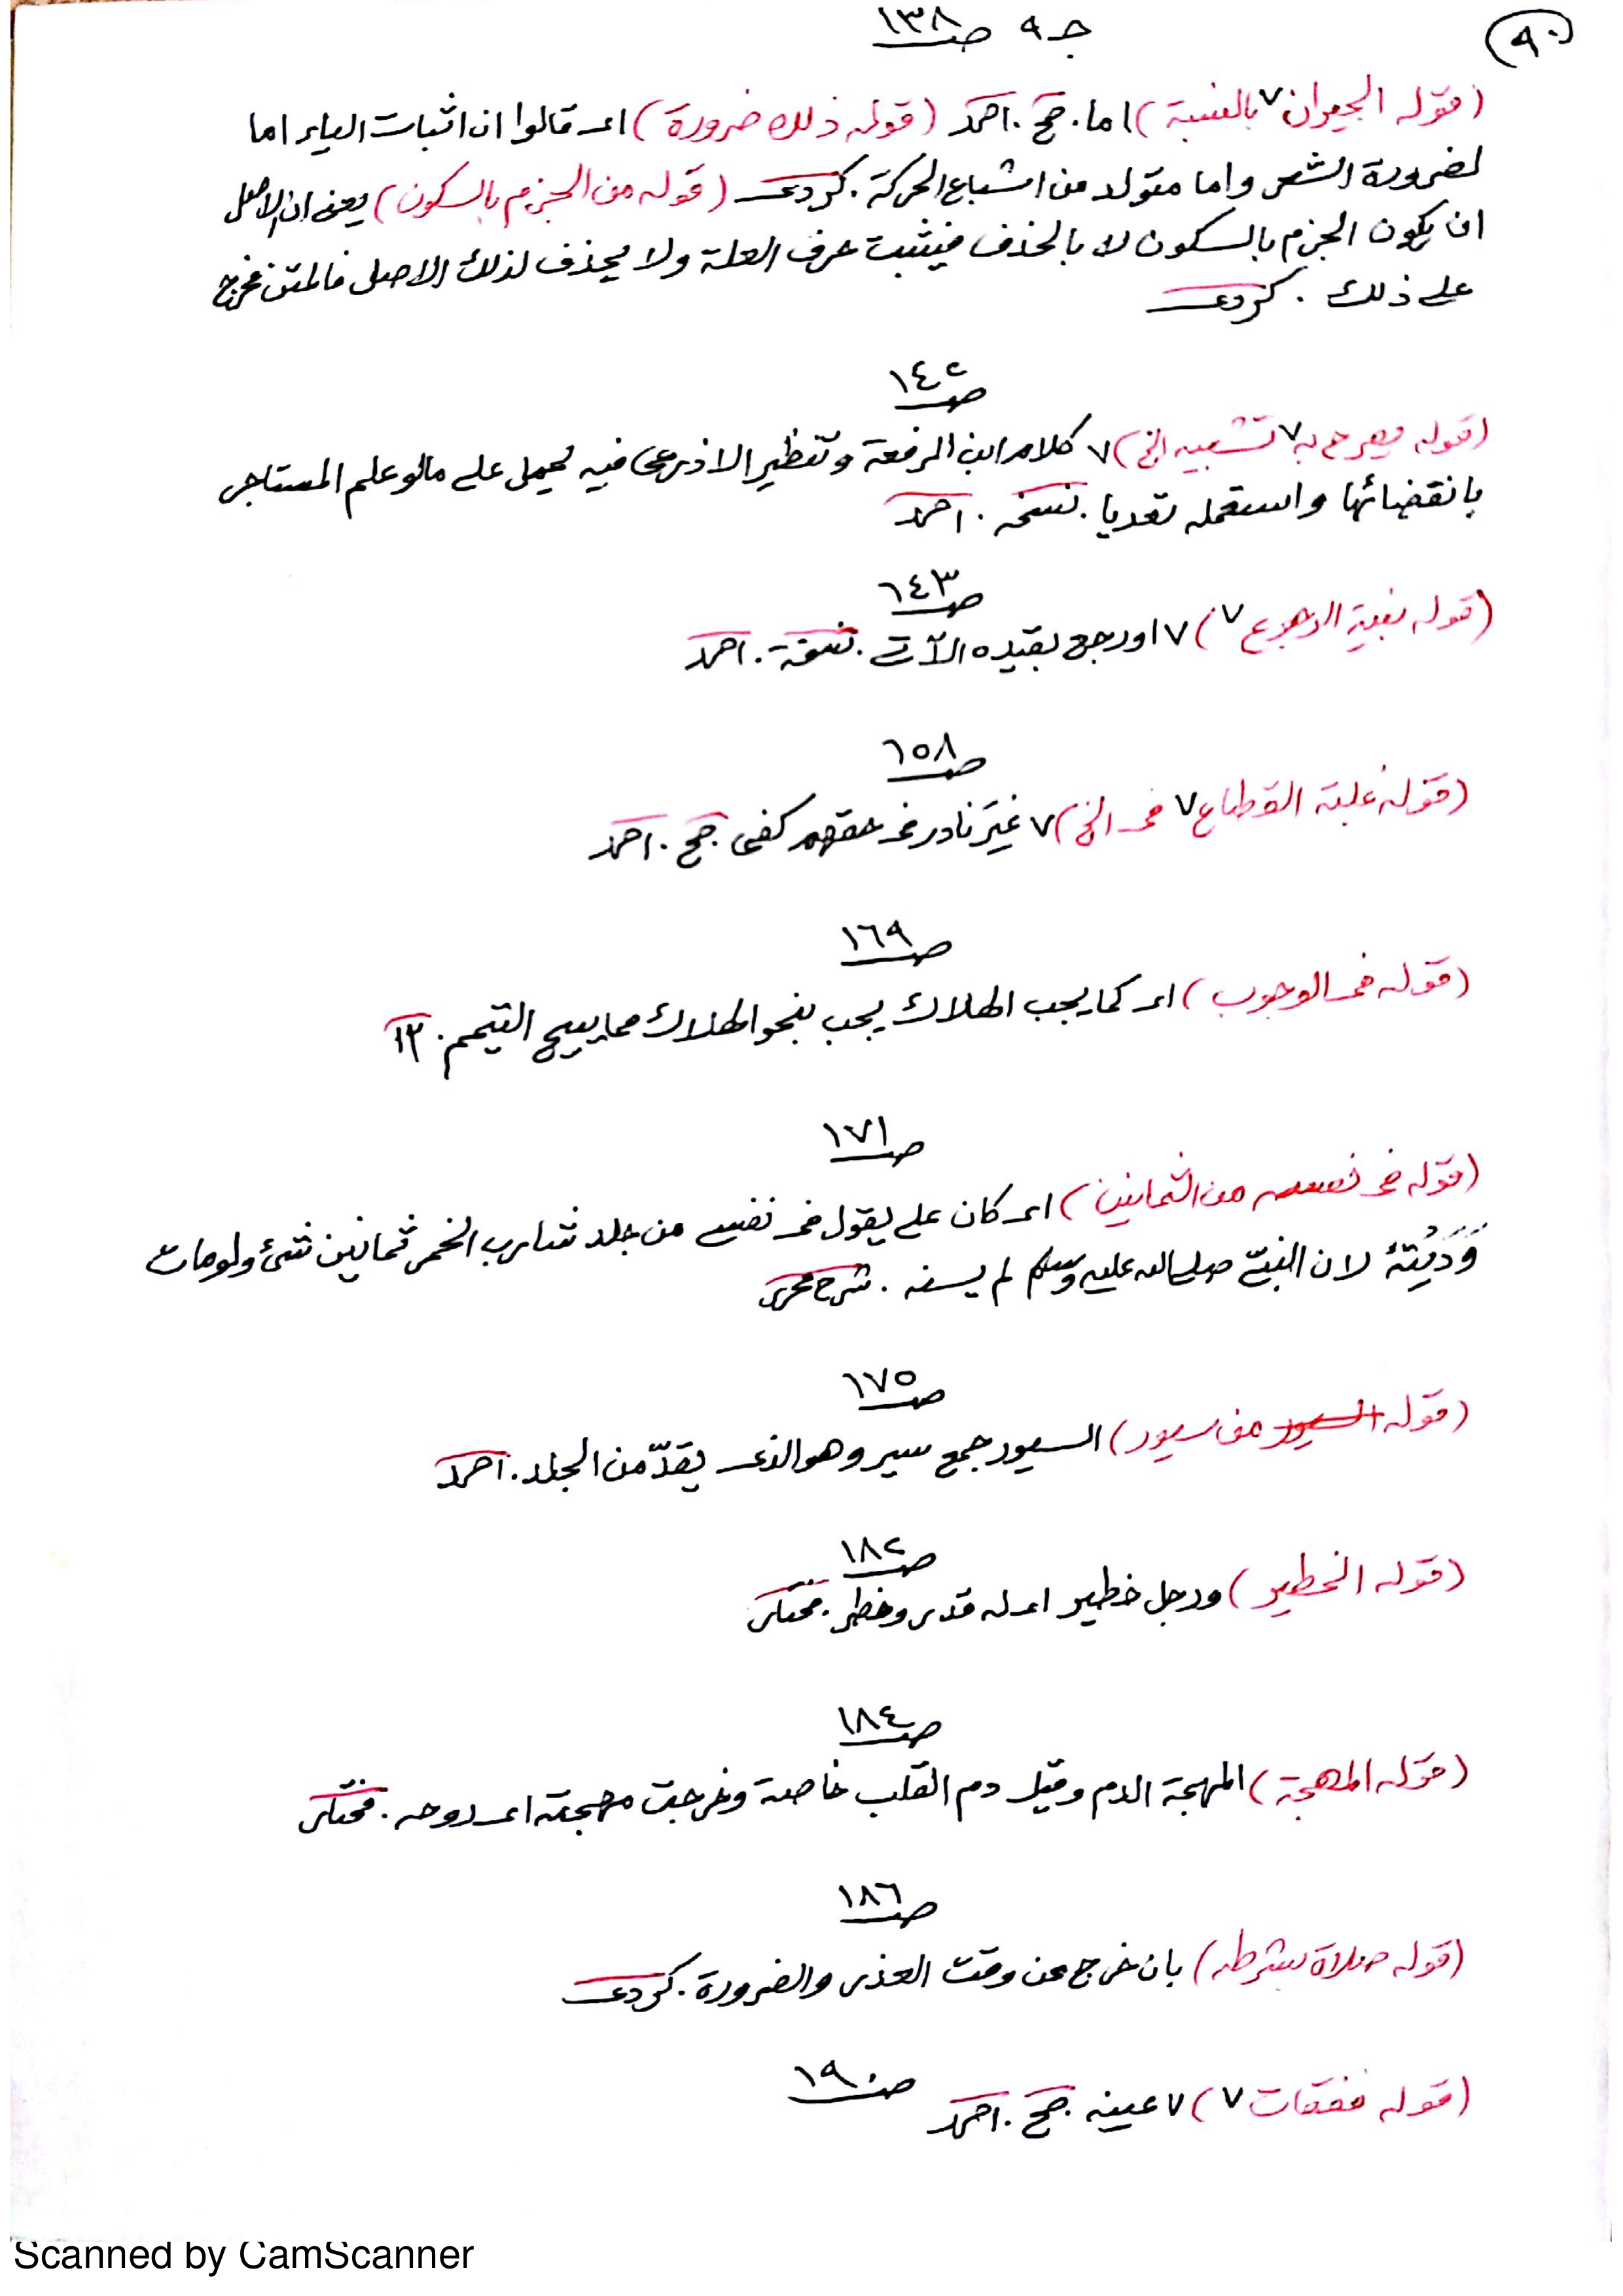 (٩٠)
جـ ٩ صـ ١٣٨
(قوله الجيران ٧ بالنسبة) اما. صح. احمد (قوله ذلك ضرورة) اى قالوا ان اثبات الياء اما
لضرورة الشعر واما متولد من اشباع الحركة. كردى (قوله من الجزم بالسكون) يعنى ان الاصل
ان يكون الجزم بالسكون لا بالحذف فيثبت حرف العلة ولا يحذف لذلك الاصل فالمتن مخرج
على ذلك. كردى
صـ ١٤٢
(قوله يصرح به ٧ تشبيه الخ) ٧ كلام ابن الرفعة وتنظير الاذرعى فيه يحمل على ما لو علم المستاجر
بانقضائها واستعمله تعديا. نسخه. احمد
صـ ١٤٣
(قوله بنية الرجوع ٧) ٧ او رجع بقيده الآتى. نسخة. احمد
صـ ١٥٨
(قوله غلبة القطاع ٧ فى الخ) ٧ غير نادر فى حقهم كفى صح. احمد
صـ ١٦٩
(قوله فى الوجوب) اى كما يجب الهلاك يجب بنحو الهلاك مما يبيح التيمم. ١٣
صـ ١٧١
(قوله فى نفسه من الثمانين) اى كان على يقول فى نفسى من جلد شارب الخمر ثمانين شئ ولو مات
وَدَيْتهُ لان النبىّ صلى الله عليه وسلم لم يسنه. شرح محرر
صـ ١٧٥
(قوله السيور من سيور) السيور جمع سير وهو الذى يقدّ من الجلد. احمد
صـ ١٨٢
(قوله الخطير) ورجل خطير اى له قدر وخطر. مختار
صـ ١٨٤
(قوله المهجة) المهجة الدم وقيل دم القلب خاصة وخرجت مهجته اى روحه. مختار
صـ ١٨٦
(قوله صلاة بشرطه) بان خرج عن وقت العذر والضرورة. كردى
صـ ١٩٠
(قوله ففقأت ٧) ٧ عينه. صح. احمد
Scanned by CamScanner